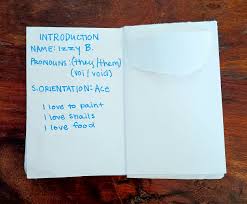 INTRODUCTION
NAME: Izzy B.
PRONOUNS: (they/them)
(voi/void)
S. ORIENTATION: ACE
I love to paint
I love snails
I love food